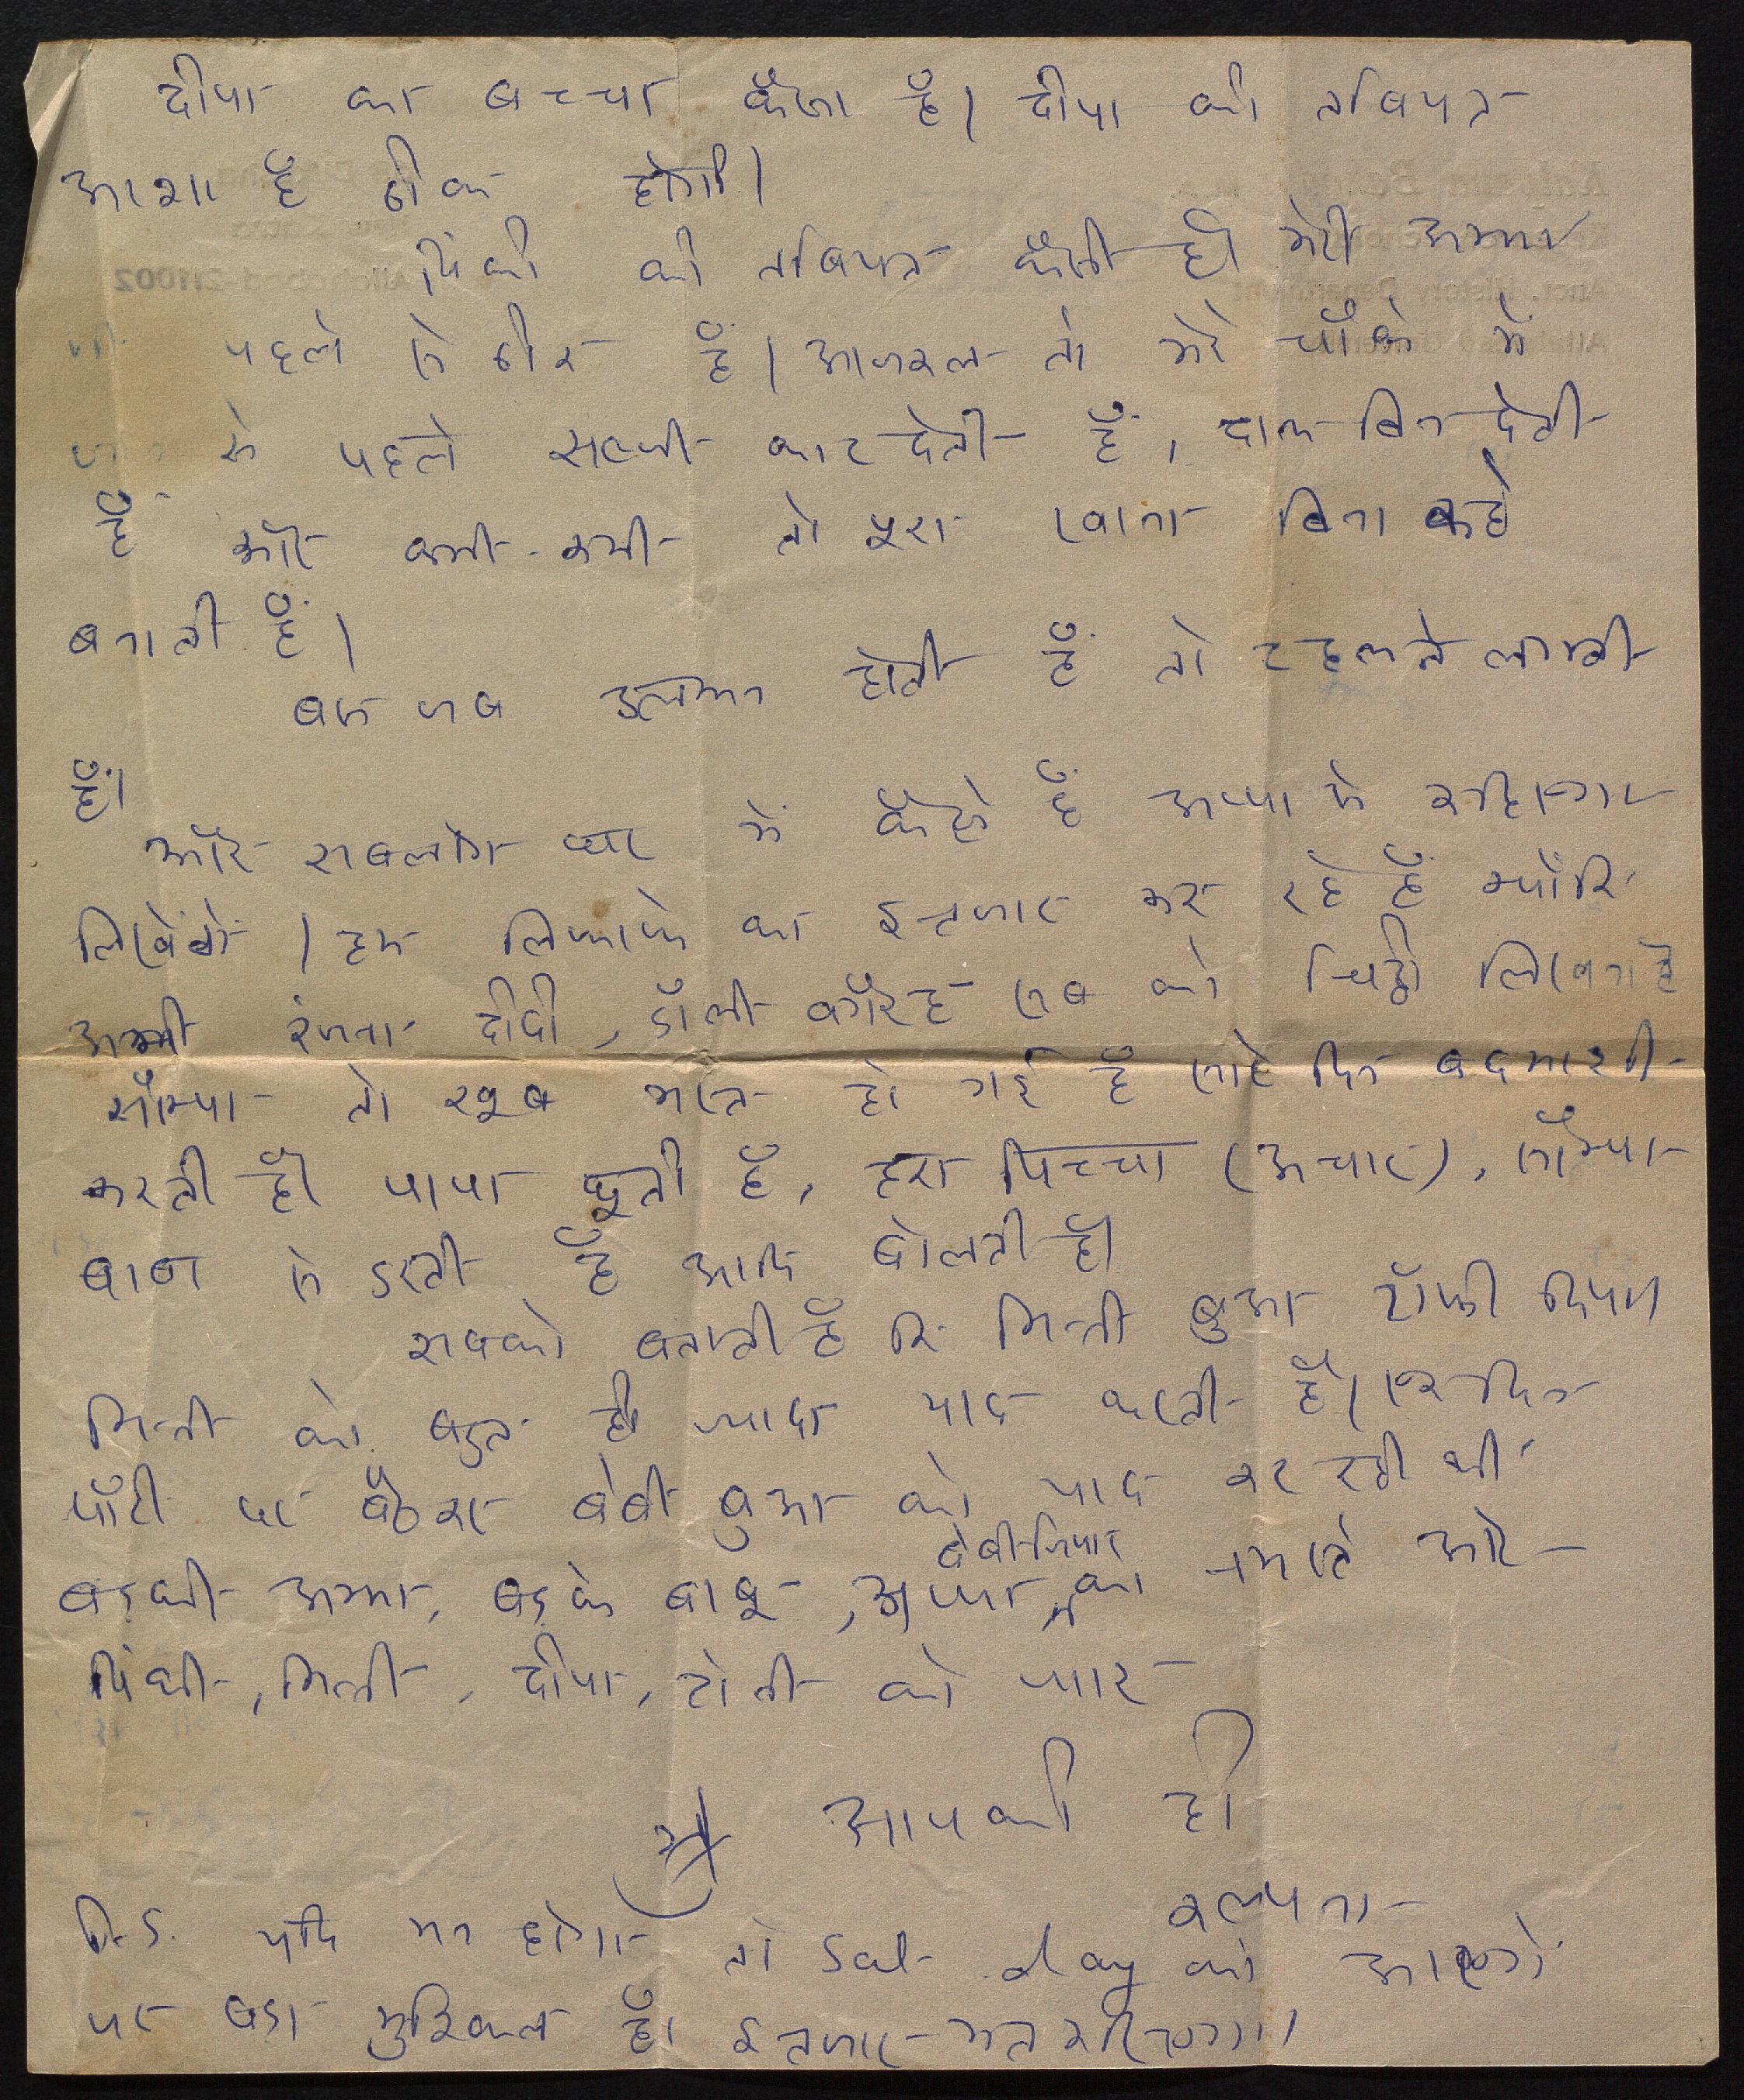 दीपा का बच्चा कैसा है। दीपा की तबियत
आशा है ठीक होगी।
पिंकी की तबियत कैसी है। मेरी अम्मा
पहले से ठीक हैं। आजकल तो मेरे चौके में
से पहले सब्जी काट देती हैं, दाल बिन देती
हैं और कभी-कभी तो पूरा खाना बिना कहे
बनाती हैं।
बस जब उलझन होती हैं तो टहलने लगती
हैं।
और सबलोग घर में कैसे हैं अप्पा से कहिएगा
लिखेंगे। हम लिफाफे का इन्तजार कर रहे हैं क्योंकि
अभी रंजना दीदी, डॉली वगैरह सब को चिट्ठी लिखना है
सौम्या तो खूब मस्त हो गई है सारे दिन बदमाशी
करती है। पापा छूती है, हरा पिच्चा (अचार), सौम्या
बाबा से डरती है आदि बोलती है।
सबको बताती है कि मिन्नी बुआ टॉफी दिया।
मिन्नी को बहुत ही ज्यादा याद करती है। एक दिन
पॉटी पर बैठकर बेबी बुआ को याद कर रही थी
बड़की अम्मा, बड़के बाबू, अप्पा, बेबी जिया को नमस्ते और
पिंकी, मिन्नी, दीपा, टोनी को प्यार
आपकी ही
कल्पना
पि.S. यदि मन होगा तो Sat day को आएंगे
पर बड़ा मुश्किल है। इन्तजार मत करिएगा।